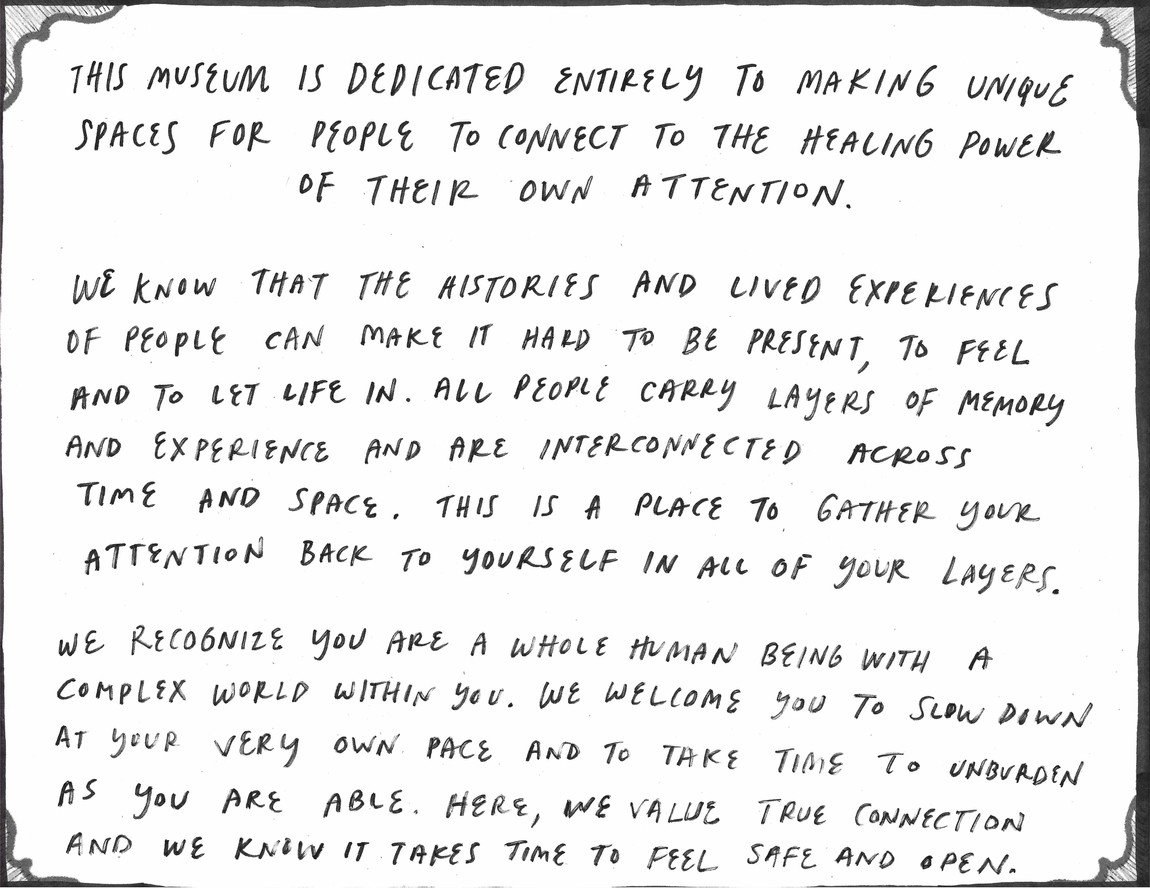 THIS MUSEUM IS DEDICATED ENTIRELY TO MAKING UNIQUE
SPACES FOR PEOPLE TO CONNECT TO THE HEALING POWER
OF THEIR OWN ATTENTION.
WE KNOW THAT THE HISTORIES AND LIVED EXPERIENCES
OF PEOPLE CAN MAKE IT HARD TO BE PRESENT, TO FEEL
AND TO LET LIFE IN. ALL PEOPLE CARRY LAYERS OF MEMORY
AND EXPERIENCE AND ARE INTERCONNECTED ACROSS
TIME AND SPACE. THIS IS A PLACE TO GATHER YOUR
ATTENTION BACK TO YOURSELF IN ALL OF YOUR LAYERS.
WE RECOGNIZE YOU ARE A WHOLE HUMAN BEING WITH A
COMPLEX WORLD WITHIN YOU. WE WELCOME YOU TO SLOW DOWN
AT YOUR VERY OWN PACE AND TO TAKE TIME TO UNBURDEN
AS YOU ARE ABLE. HERE, WE VALUE TRUE CONNECTION
AND WE KNOW IT TAKES TIME TO FEEL SAFE AND OPEN.